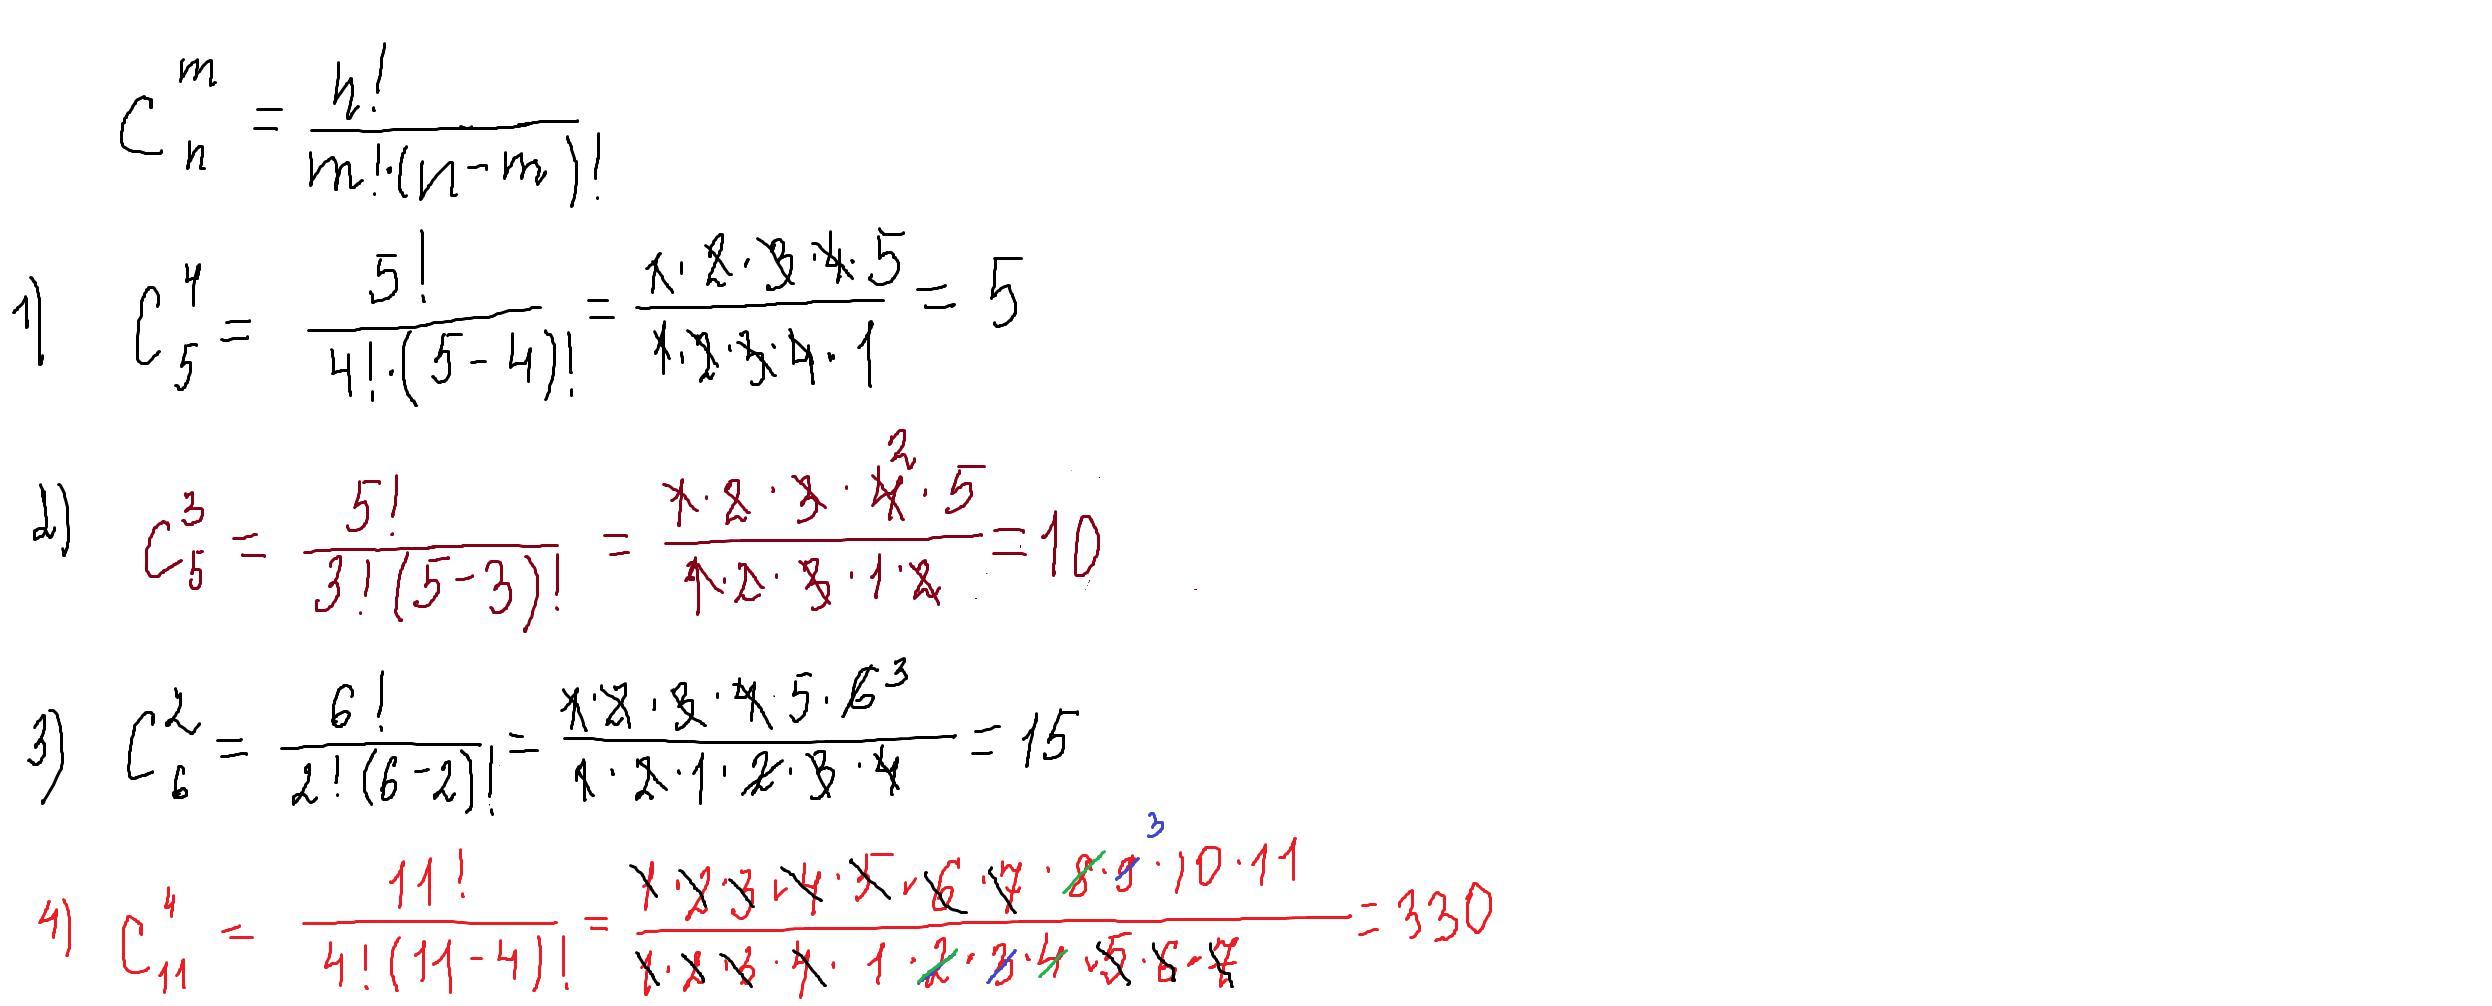 C_n^m = n! / (m!·(n-m)!)
1) C_5^4 = 5! / (4!·(5-4)!) = (1·2·3·4·5) / (1·2·3·4·1) = 5
2) C_5^3 = 5! / (3!(5-3)!) = (1·2·3·4²·5) / (1·2·3·1·2) = 10
3) C_6^2 = 6! / (2!(6-2)!) = (1·2·3·4·5·6³) / (1·2·1·2·3·4) = 15
4) C_11^4 = 11! / (4!(11-4)!) = (1·2·3·4·5·6·7·8·9³·10·11) / (1·2·3·4·1·2·3·4·5·6·7) = 330